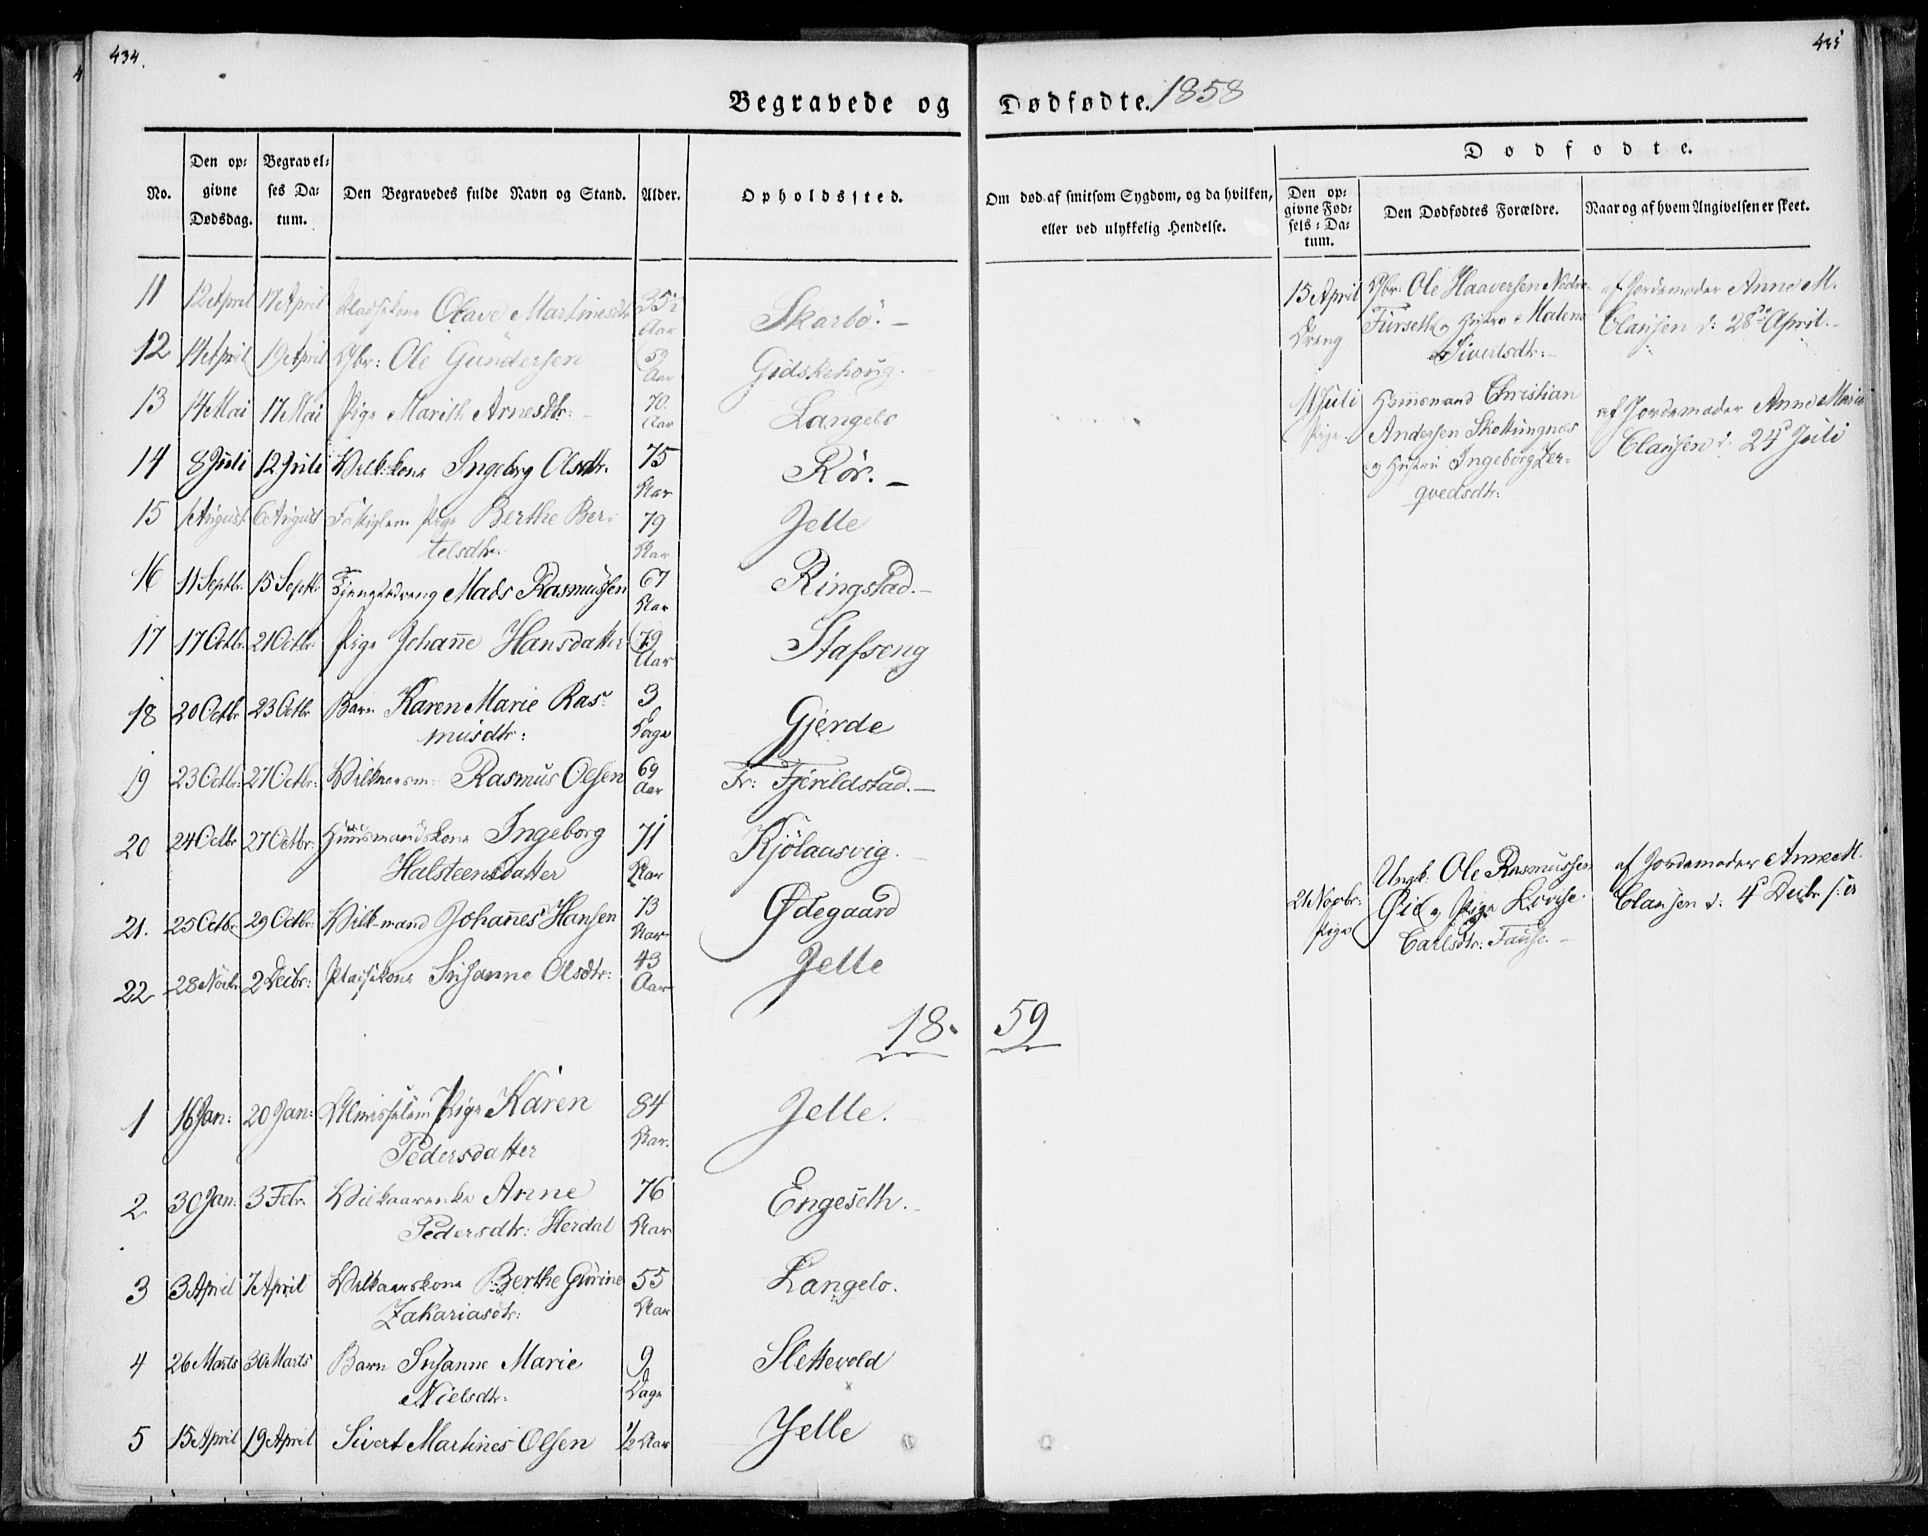 434.
435
Begravede og Dødfødte. 1858
No.
Den opgivne Dødsdag.
Begravelses Datum.
Den Begravedes fulde Navn og Stand.
Alder.
Opholdssted.
Om død af smitsom Sygdom, og da hvilken,
eller ved ulykkelig Hendelse.
Dødfødte.
Den opgivne Fødsels-Datum.
Den Dødfødtes Forældre.
Naar og af hvem Angivelsen er skeet.
11 12 April 17 April Pladsekone Olave Martinesdtr 35½ Aar Skarbö.
12 14 April 19 April Gbr: Ole Gundersen 59 Aar Gidskehoug.
13 14 Mai 17 Mai Pige Marith Arnesdtr: 70 Aar Langelo
14 8 Juli 12 Juli Vilk.kone Ingeborg Olsdtr. 75 Aar Rör.
15 1 August 6 August Fattiglem Pige Berthe Ber-
telsdtr. 79 Aar Jelle
16 11 Septbr. 15 Septbr Mads Rasmussen 67 Aar Ringstad.
17 17 Octbr. 21 Octbr. Pige Johanne Hansdatter 79 Aar Stafseng
18 20 Octbr 23 Octbr Barn Karen Marie Ras-
musdtr: 3 Dage Gjerde
19 23 Octbr: 27 Octbr: Vilkaarsm: Rasmus Olsen 69 Aar Fr: Fjerildstad.
20 24 Octbr 27 Octbr: Huusmandskone Ingeborg
Halsteensdatter 71 Aar Kjölaasvig.
21. 25 Octbr 29 Octbr: Vilk-mand Johannes Hansen 73 Aar Ødegaard
22 28 Novbr 2 Decbr: Pladsekone Susanne Olsdtr: 43 Aar Jelle
18 59
1 16 Jan: 20 Jan: Almisselem Pige Karen
Pedersdatter 84 Aar. Jelle.
2 30 Jan: 3 Febr. Vilkaarenke Anne
Pedersdtr: Herdal 76 Aar Engeseth.
3 3 April 7 April Vilkaarskone Berthe Gurine
Zakariasdtr: 55 Aar Langelo.
4 26 Marts 30 Marts Barn Susanne Marie
Nielsdtr: 9 Dage Slettevold
5 15 April 19 April Sivert Martines Olsen ½ Aar Jelle
15 April Dreng
Gbr: Ole Haaversen Nedre
Furseth og Hustru Malene
Sivertsdtr:
af Jordemoder Anne M.
Clausen d: 28de April.
11 Juli Pige
Huusmand Christian
Andersen Skotungnes
og Hustru Ingeborg Zer-
qvedsdtr:
af Jordemoder Anne Marie
Clausen d: 24d Juli
21 Novbr: Pige
Ungk: Ole Rasmussen
Øie og Pige Lovise
Carlsdtr: Fauske.
af Jordemoder Anne M.
Clausen d: 4d Decbr